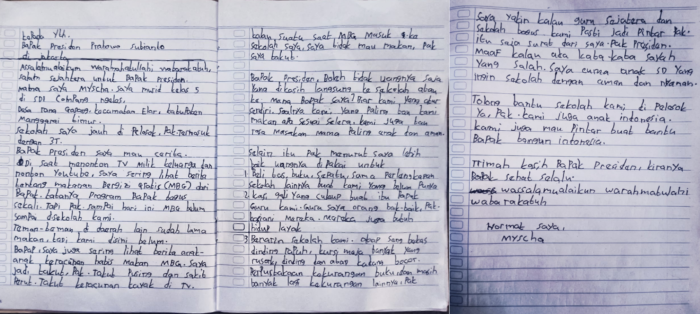 Kepada Yth.
Bapak Presiden Prabowo Subianto
di Jakarta
Assalamualaikum warahmatullahi wabarakatuh,
salam sejahtera untuk Bapak Presiden.
nama saya Myscha, saya murid kelas 5
di SDI
Desa Rana Gapang kecamatan Elar, kabupaten
Manggarai Timur.
Sekolah saya jauh di Pelosok, Pak. Termasuk
dengan 3T.
Bapak Presiden saya mau cerita.
saat menonton TV Milik keluarga dan
nonton Youtube, saya sering lihat berita
tentang makanan Bergizi gratis (MBG) dari
Bapak. katanya Program Bapak bagus
sekali. Tapi Pak sampai hari ini MBG belum
sampai disekolah kami.
Teman-teman di daerah lain sudah lama
makan, tapi kami disini belum.
Bapak, saya juga sering lihat berita anak-
anak keracunan habis makan MBG. Saya
jadi takut, Pak. Takut Pusing dan sakit
Perut. Takut keracunan kayak di TV.
kalau suatu saat MBG Masuk ke
sekolah saya, saya tidak mau makan, Pak
saya takut.
Bapak Presiden, Boleh tidak uangnya saja
yang dikasih langsung ke sekolah atau
ke Mama Bapak saya? Biar kami yang atur
sendiri. Soalnya kami yang Paling tau kami
makan apa sesuai selera kami. Juga kami
rasa Masakan mama Paling enak dan aman.
Selain itu Pak menurut saya lebih
baik uangnya di Pakai untuk:
1. Beli tas, buku, sepatu, sama Perlengkapan
sekolah lainnya buat kami yang belum Punya
2. kasi gaji yang cukup buat ibu Bapak
Guru kami. Guru saya orang baik-baik, Pak.
kasiani Mereka. Mereka juga butuh
hidup layak
3. Benarin sekolah kami. atap sama bebas
dinding rapuh, kursi meja banyak yang
rusak, dinding dan atap kadang bocor.
Perpustakaan kekurangan buku. dan masih
banyak lagi kekurangan lainnya, Pak
Saya yakin kalau guru sejahtera dan
sekolah bagus kami Pasti jadi Pintar Pak.
Itu saja surat dari saya Pak Presiden.
Maaf kalau ada kata-kata saya
yang salah. Saya cuman anak SD yang
ingin sekolah dengan aman dan nyaman.
Tolong bantu sekolah kami di Pelosok
ya, Pak. kami juga anak indonesia.
kami juga mau Pintar buat bantu
Bapak bangun indonesia.
Trimah kasih Bapak Presiden, kiranya
Bapak sehat selalu.
wassalamualaikum warahmatulahi
wabarakatuh
Hormat saya,
MYSCHA